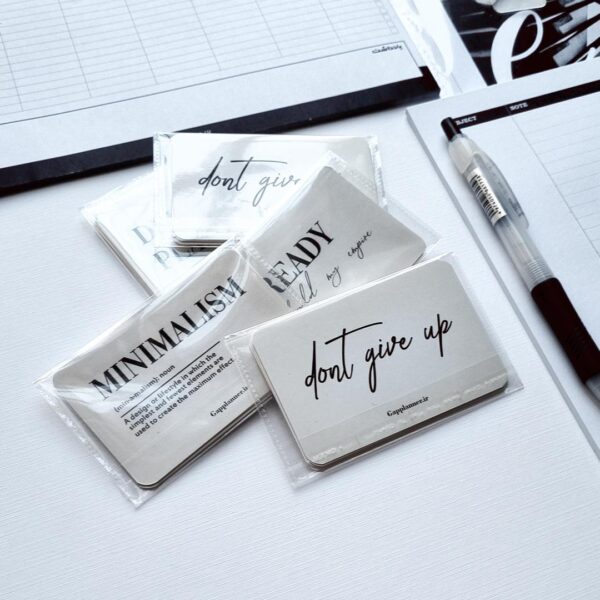 BJECT NOTE
dont give
READY
my empire
MINIMALISM
(min·im·alism): noun
A design or lifestyle in which the
simplest and fewest elements are
used to create the maximum effect
Gapplanner.ir
dont give up
Gapplanner.ir